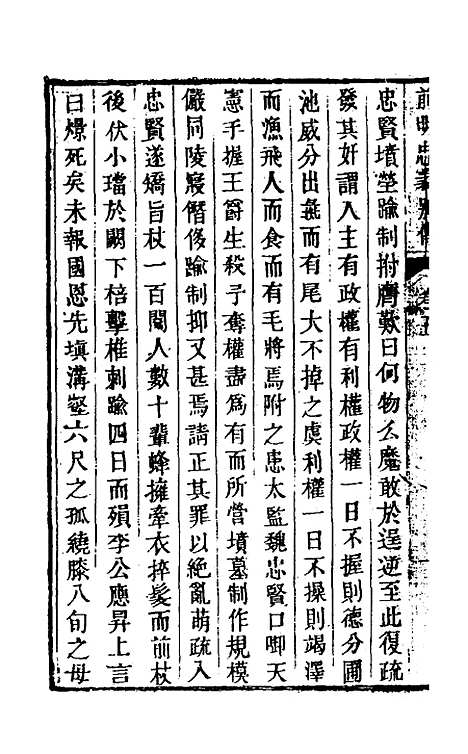 前明忠義別傳
忠賢墳塋踰制拊膺歎曰何物幺魔敢於逞逆至此復疏
發其奸謂人主有政權有利權政權一日不握則德分圃
池威分出彘而有尾大不掉之虞利權一日不操則竭澤
而漁飛人而食而有毛將焉附之患太監魏忠賢口啣天
憲手握王爵生殺予奪權盡爲有而所營墳墓制作規模
儼同陵寢僭侈踰制抑又甚焉請正其罪以絕亂萌疏入
忠賢遂矯旨杖一百閹人數十輩蜂擁牽衣捽髮而前杖
後伏小璫於闕下棓擊椎刺踰四日而殞李公應昇上言
曰燝死矣未報國恩先填溝壑六尺之孤繞膝八旬之母